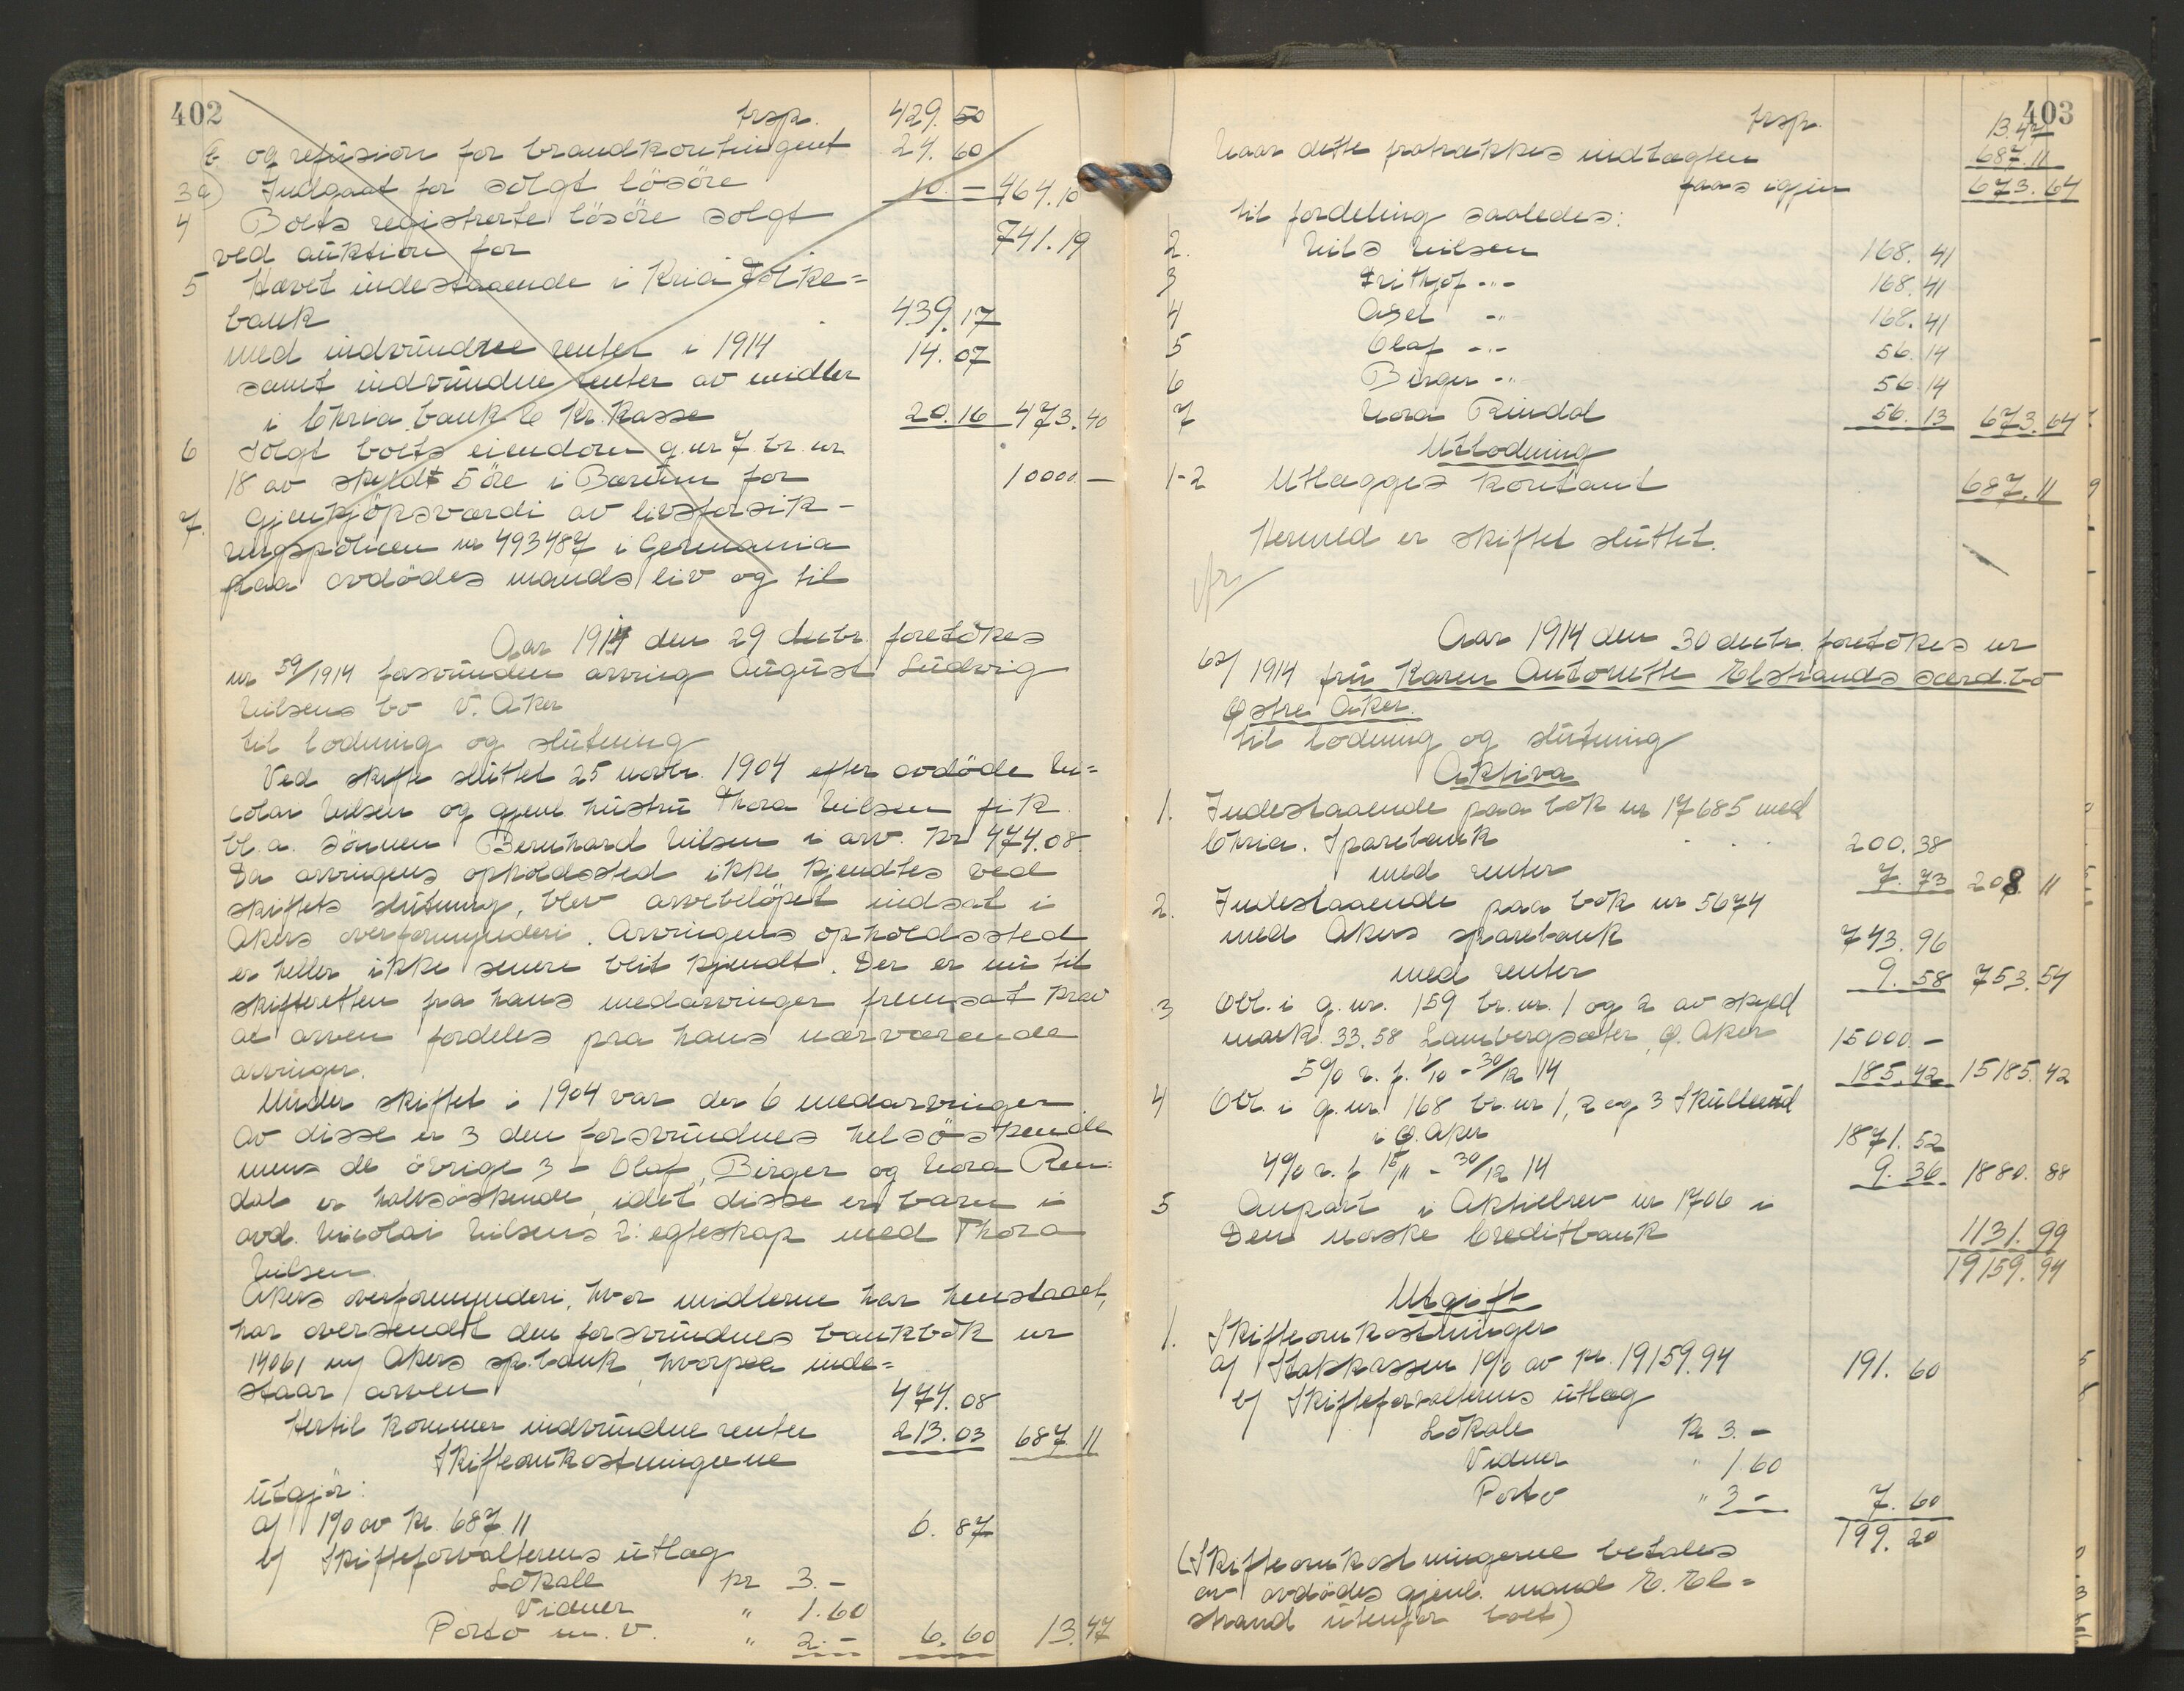 402
trsp. 429.50
b og refusion for brandkontingent 24.60
3a) Indgaat for solgt lösöre 10.— 464.10
4 Boets registrerte lösöre solgt
ved auktion for 741.19
5 Hævet indestaaende i Kria Folke=
bank 439.17
med indvundne renter i 1914 14.07
samt indvundne renter av midler
i Chria bank & Kr. Kasse 20.16 473.40
6 Solgt boets eiendom g.nr 7 br. nr
18 av skyld 5 öre i Bærum for 10000.—
7. Gjenkjöpsværdi av livsforsik-
ringspolicen nr 493487 i Germania
paa avdödes mands liv og til
Aar 1914 den 29 decbr. foretokes
nr 59/1914 forsvunden arving August Ludvig
Nilsens bo V. Aker
til lodning og slutning
Ved skifte sluttet 25 novbr. 1904 efter avdöde Ni=
colai Nilsen og gjenl hustru Thora Nilsen fik
bl.a. sönnen Bernhard Nilsen i arv. kr 474.08.
Da arvingens opholdssted ikke kjendtes ved
skiftets slutning, blev arvebelöpet indsat i
Akers overformynderi. Arvingens opholdssted
er heller ikke senere blit kjendt. Der er nu til
skifteretten fra hans medarvinger fremsat krav
at arven fordeles paa hans nærværende
arvinger.
Under skiftet i 1904 var der 6 medarvinger
Av disse er 3 den forsvundnes helsöskende
mens de övrige 3 - Olaf, Birger og Nora Rin
dal er halvsöskende, idet disse er barn i
avd. Nicolai Nilsens 2: egteskap med Thora
Nilsen.
Akers overformynderi, hvor midlerne har henstaaet,
har oversendt den forsvundnes bankbok nr
14061 m/ Akers sp.bank, hvorpaa inde=
staar arven 474.08
Hertil kommer indvundne renter 213.03 687.11
Skifteomkostningerne
utgjör:
a) 1% av kr. 687.11 6.87
b) Skifteforvalterens utlæg
Lokale kr 3.—
Vidner " 1.60
Porto m.v. " 2.— 6.60 13.47
403
trsp. 13.47
Naar dette fratrækkes indtægten 687.11
faaes igjen 673.64
til fordeling saaledes:
2. Nils Nilsen 168.41
3 Frithjof -"- 168.41
4 Axel -"- 168.41
5 Olaf -"- 56.14
6 Birger -"- 56.14
7 Nora Rindal 56.13 673.64
Utlodning
1-2 Utlægges kontant 687.11
Hermed er skiftet sluttet.
Aar 1914 den 30 decbr. foretokes nr
62/1914 fru Karen Antonette Elstrands særd.bo
Østre Aker.
til lodning og slutning
Aktiva
1. Indestaaende paa bok nr 17685 med
Chria. Sparebank 200.38
med renter 7.73 208.11
2. Indestaaende paa bok nr 5674
med Akers sparebank 743.96
med renter 9.58 753.54
3 Obl. i g.nr. 159 br.nr. 1 og 2 av skyld
mark 33.58 Lambergsæter, Ø. Aker 15000.—
5% r. f. 1/10 - 30/12 14 185.42 15185.42
4 Obl. i g.nr. 168 br.nr 1, 2 og 3 Skullerud
i Ø. Aker 1871.52
4% r. f 15/11 - 30/12 14 9.36 1880.88
5 Anpart i Aktiebrev nr 1706 i
Den norske Creditbank 1131.99
19159.94
Utgift
1. Skifteomkostninger
a) Statskassen 1% av kr. 19159.94 191.60
b) Skifteforvalterens utlæg
Lokale kr 3.—
Vidner " 1.60
Porto " 3— 7.60
199.20
(Skifteomkostningerne betales
av avdödes gjenl. mand E. El=
strand utenfor boet)